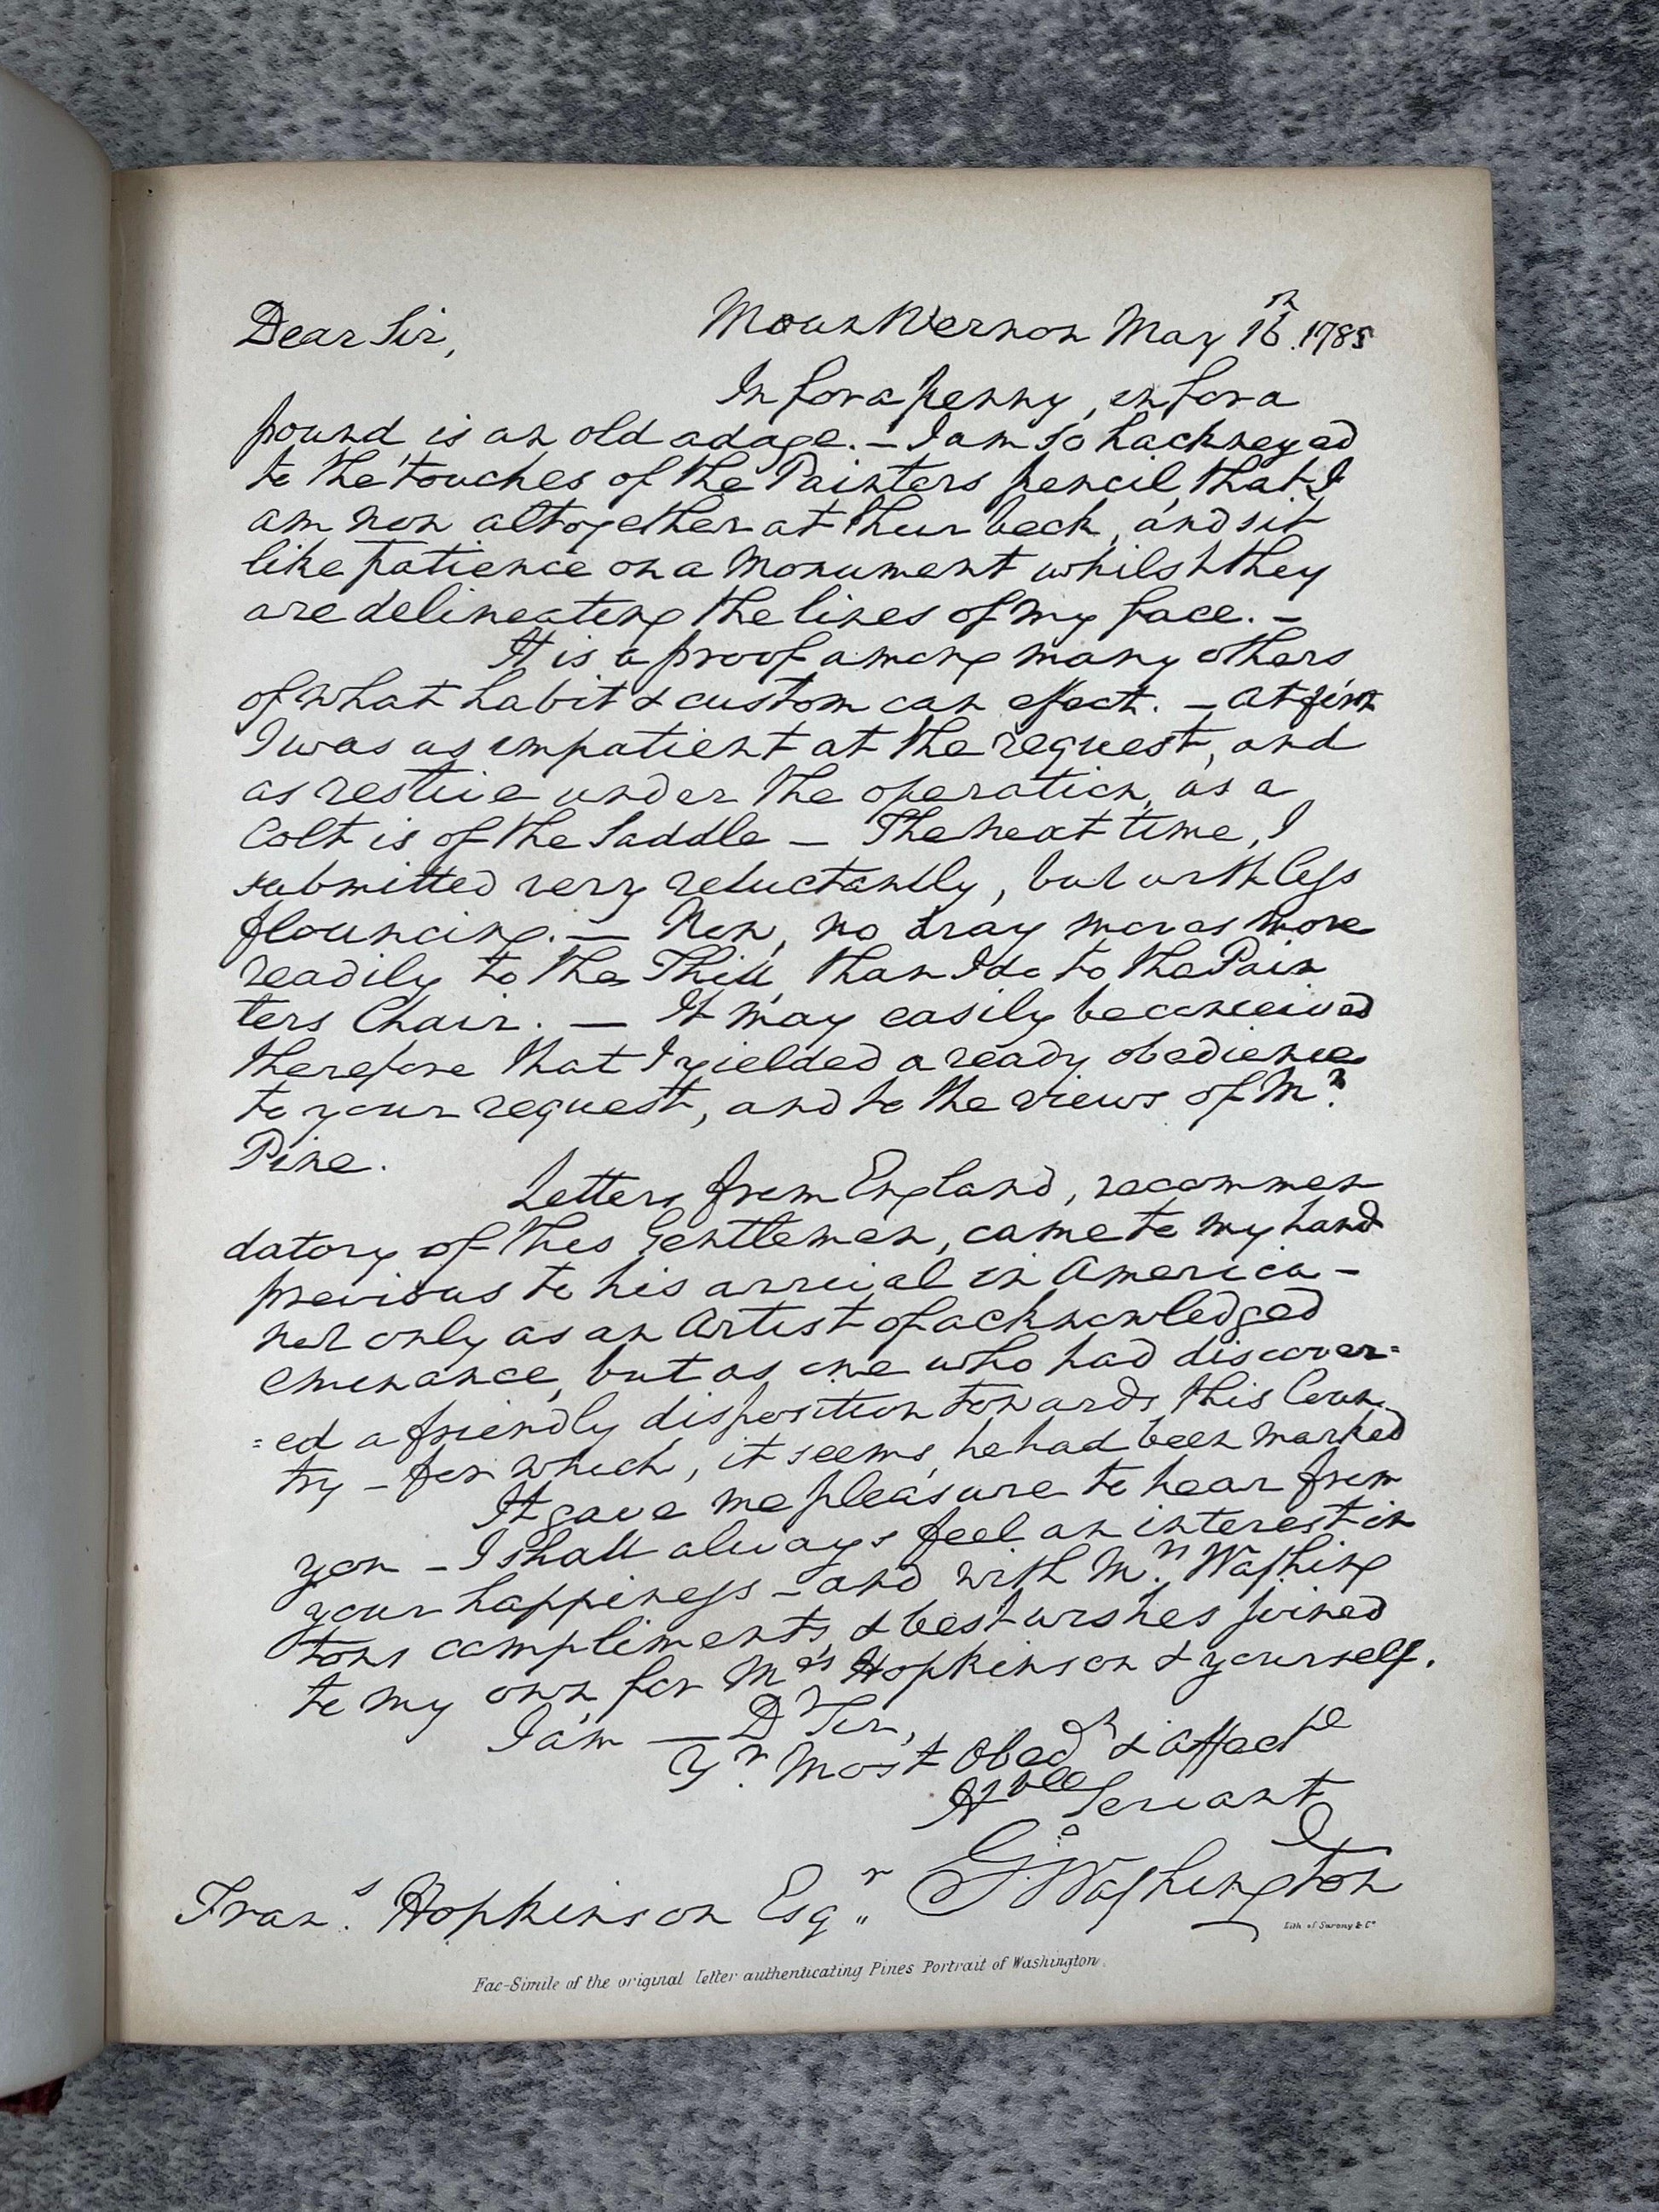 Dear Sir, Mount Vernon May 16th. 1785
In for a penny, in for a
pound is an old adage. – I am so hackneyed
to the touches of the Painters pencil, that I
am now altogether at their beck, and sit
like patience on a Monument whilst they
are delineating the lines of my face. –
It is a proof among many others
of what habit & custom can effect. – At first
I was as impatient at the request, and
as restive under the operation, as a
Colt is of the Saddle – The next time, I
submitted very reluctantly, but with less
flouncing. – Now, no dray moves more
readily to the Thill, than I do to the Pain
ters Chair. – It may easily be conceived
therefore that I yielded a ready obedience
to your request, and to the views of Mr.
Pine.
Letters from England, recommen
datory of this Gentleman, came to my hand
previous to his arrival in America –
not only as an Artist of acknowledged
eminence, but as one who had discover=
=ed a friendly disposition towards this Coun
try – for which, it seems, he had been marked
It gave me pleasure to hear from
you – I shall always feel an interest in
your happiness – and with Mrs. Washing
tons compliments, & best wishes joined
to my own for Mrs Hopkinson & yourself.
I am – Dr Sir,
Yr. Most Obedt & Affecte
Hble Servant
Frans. Hopkinson Esqr„ Go: Washington
Lith of Sarony & Co
Fac-Simile of the original letter authenticating Pines Portrait of Washington.